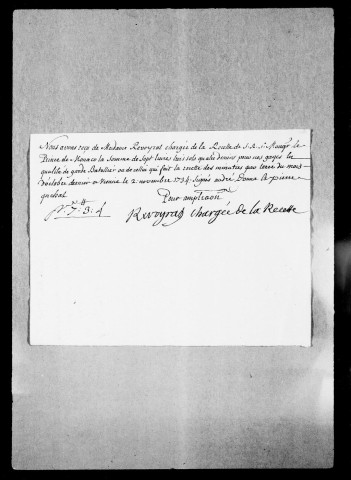 Nous avons reçu de Madame Revoyrat chargée de la Recette de S. A. S. Mongr le
Prince de Monaco la Somme de Sept livres trois sols quatre deniers pour nos gages en
qualité de garde Bateliers ou de celui qui fait la recette des minutes aux terres du mois
D'octobre dernier a Vienne le 2 novembre 1734. Signés andré Donna & pierre
quechat
Pour ampliation
Pr. 7 ₶ : 3 : 4
Revoyrat chargée de la Recette